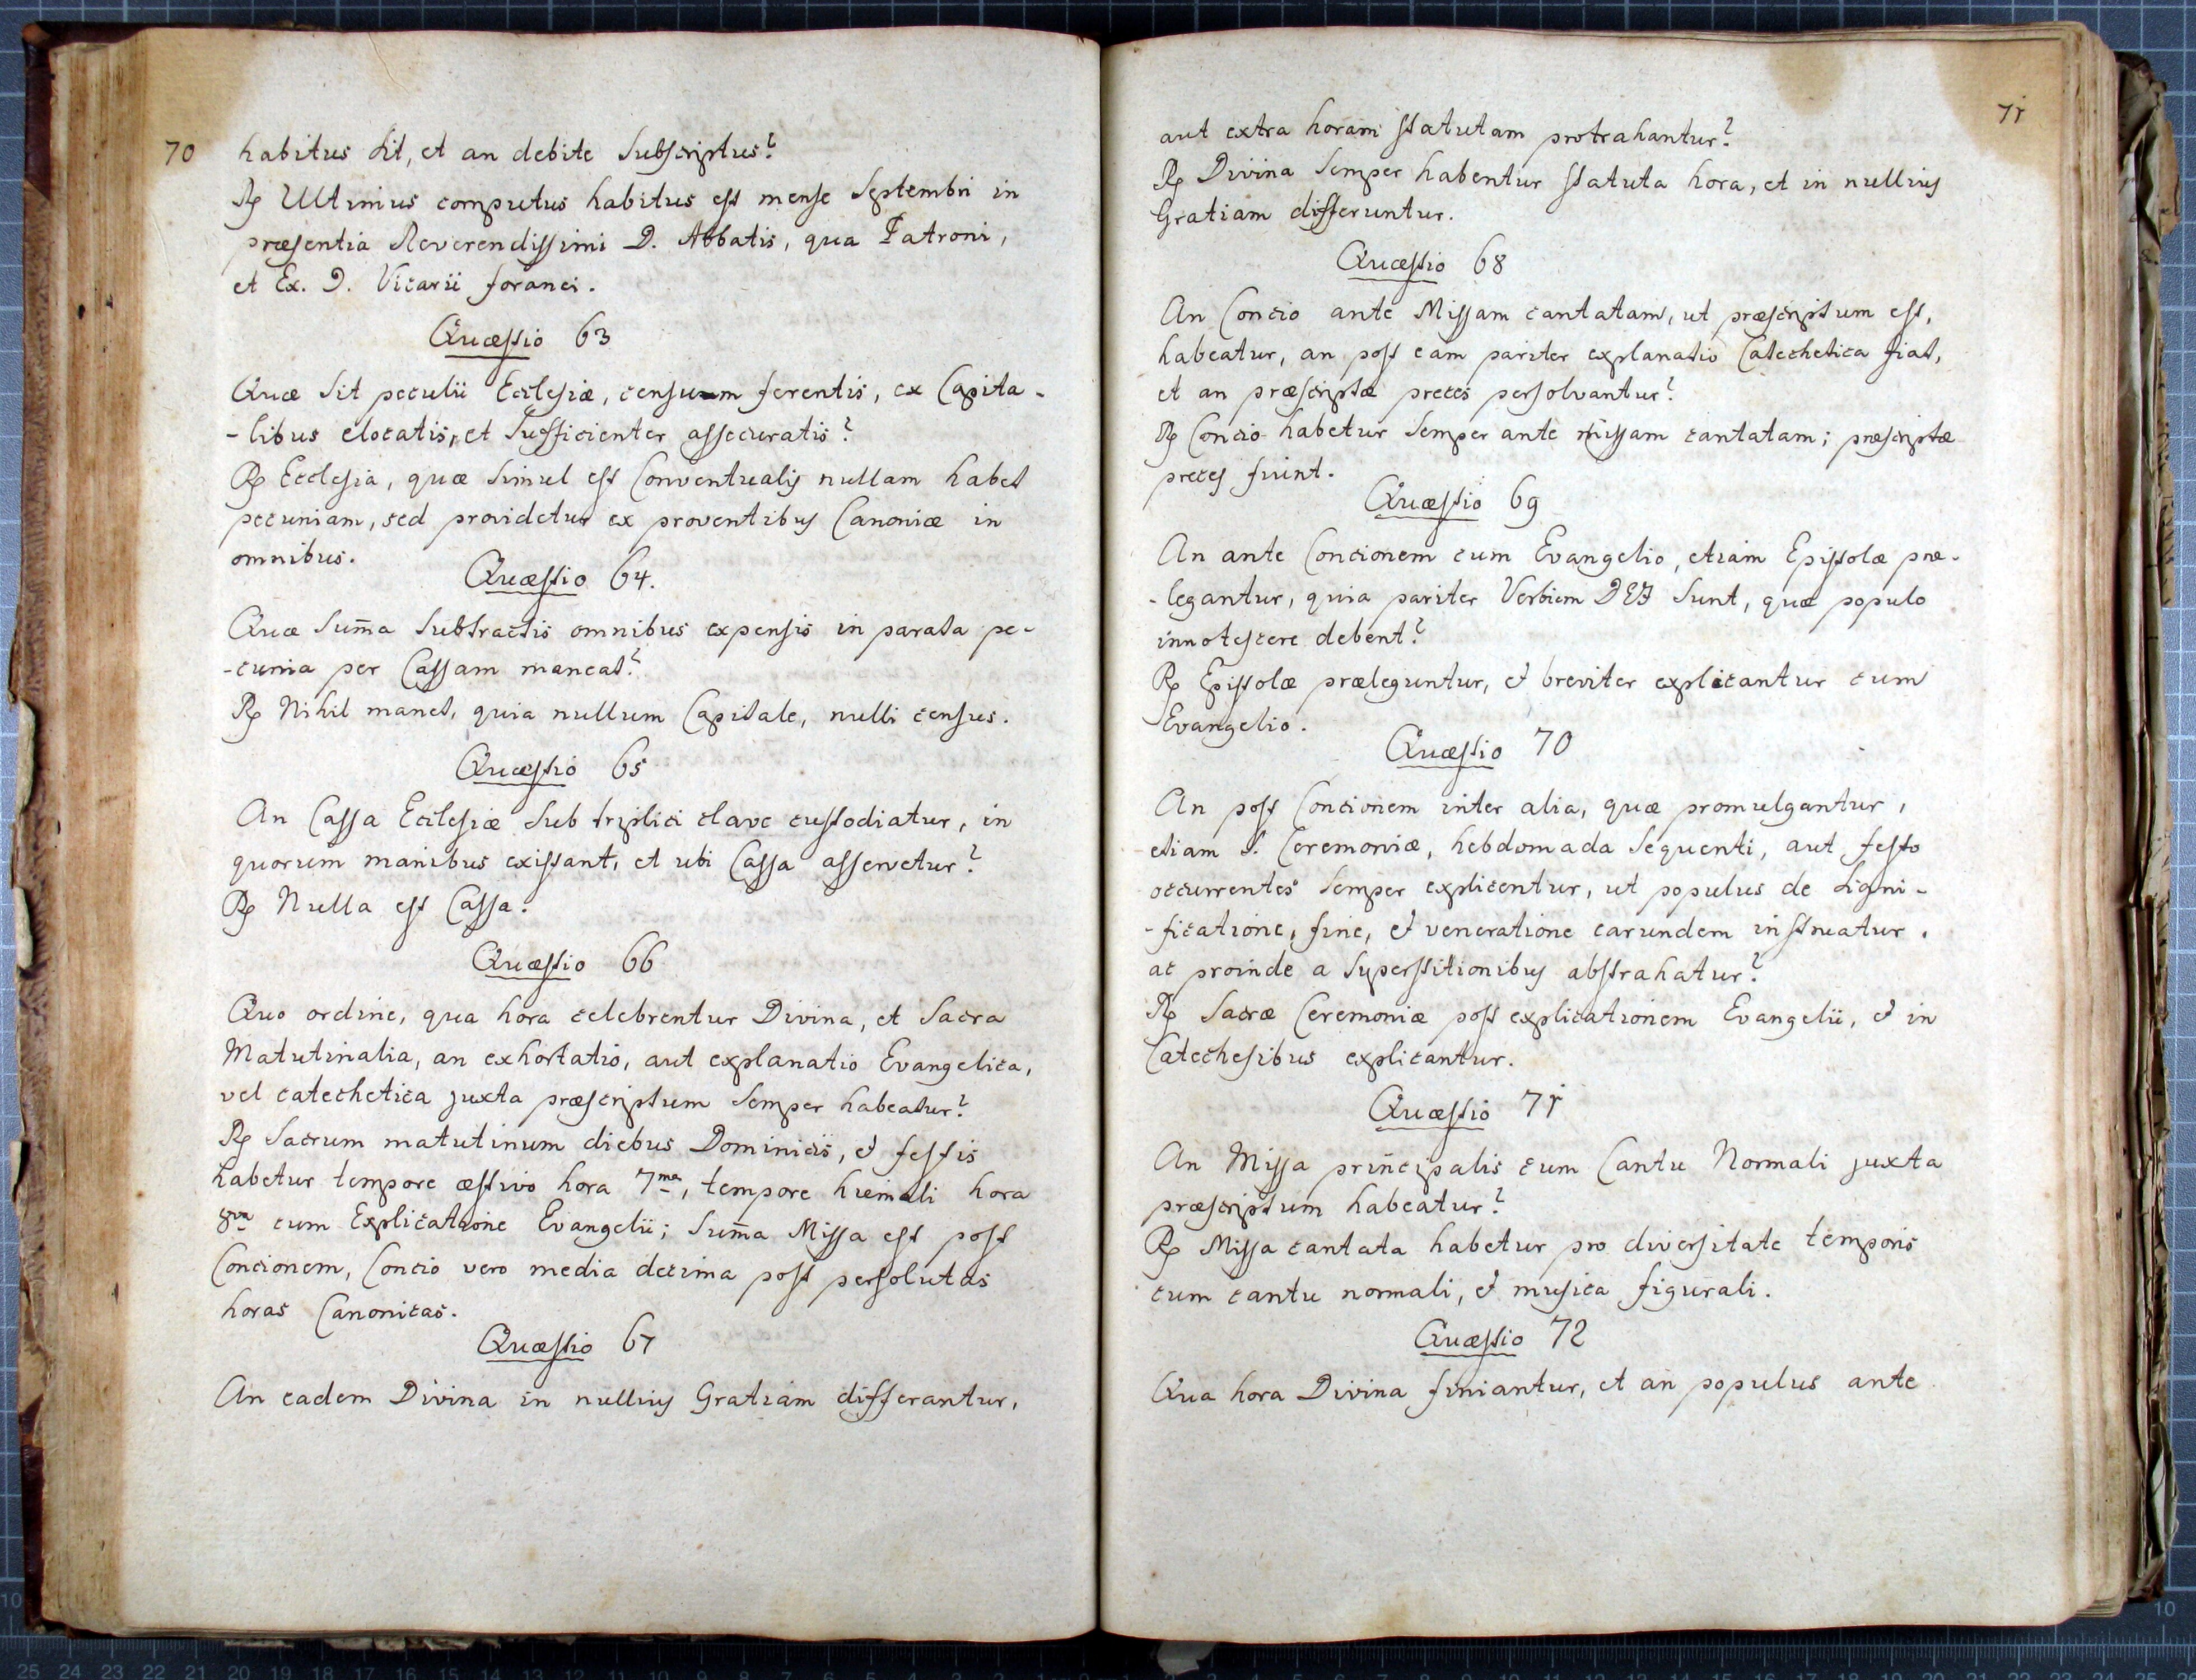 70
habitus sit, et an debite subscriptus?
℞ Ultimus computus habitus est mense Septembri in
præsentia Reverendissimi D. Abbatis, qua Patroni,
et Ex. D. Vicarii foranei.
Quæstio 63
Quæ sit peculii Ecclesiæ, censum ferentis, ex Capita-
-libus elocatis, et sufficienter assecuratis?
℞ Ecclesia, quæ simul est Conventualis nullam habet
pecuniam, sed providetur ex proventibus Canoniæ in
omnibus.
Quæstio 64.
Quæ sum̄a subtractis omnibus expensis in parata pe-
-cunia per Cassam maneat?
℞ Nihil manet, quia nullum Capitale, nulli census.
Quæstio 65
An Cassa Ecclesiæ sub triplici clave custodiatur, in
quorum manibus existant, et ubi Cassa asservetur?
℞ Nulla est Cassa.
Quæstio 66
Quo ordine, qua hora celebrentur Divina, et Sacra
Matutinalia, an exhortatio, aut explanatio Evangelica,
vel catechetica juxta præscriptum semper habeatur?
℞ Sacrum matutinum diebus Dominicis, et festis
habetur tempore æstivo hora 7ma, tempore hiemali hora
8va cum Explicatione Evangelii; sum̄a Missa est post
Concionem, Concio vero media decima post persolutas
horas Canonicas.
Quæstio 67
An eadem Divina in nullius Gratiam differantur,
71
aut extra horam statutam protrahantur?
℞ Divina semper habentur statuta hora, et in nullius
Gratiam differuntur.
Quæstio 68
An Concio ante Missam cantatam, ut præscriptum est,
habeatur, an post eam pariter explanatio Catechetica fiat,
et an præscriptæ preces persolvantur?
℞ Concio habetur semper ante missam cantatam; præscriptæ
preces fiunt.
Quæstio 69
An ante Concionem cum Evangelio, etiam Epistolæ præ-
-legantur, quia pariter Verbum DEI sunt, quæ populo
innotescere debent?
℞ Epistolæ præleguntur, et breviter explicantur cum
Evangelio.
Quæstio 70
An post Concionem inter alia, quæ promulgantur,
etiam S. Ceremoniæ, hebdomada sequenti, aut festo
occurrentes semper explicentur, ut populus de signi-
-ficatione, fine, et veneratione earundem instruatur,
ac proinde a superstitionibus abstrahatur?
℞ Sacræ Ceremoniæ post explicationem Evangelii, et in
Catechesibus explicantur.
Quæstio 71
An Missa principalis cum Cantu Normali juxta
præscriptum habeatur?
℞ Missa cantata habetur pro diversitate temporis
cum cantu normali, et musica figurali.
Quæstio 72
Qua hora Divina finiantur, et an populus ante